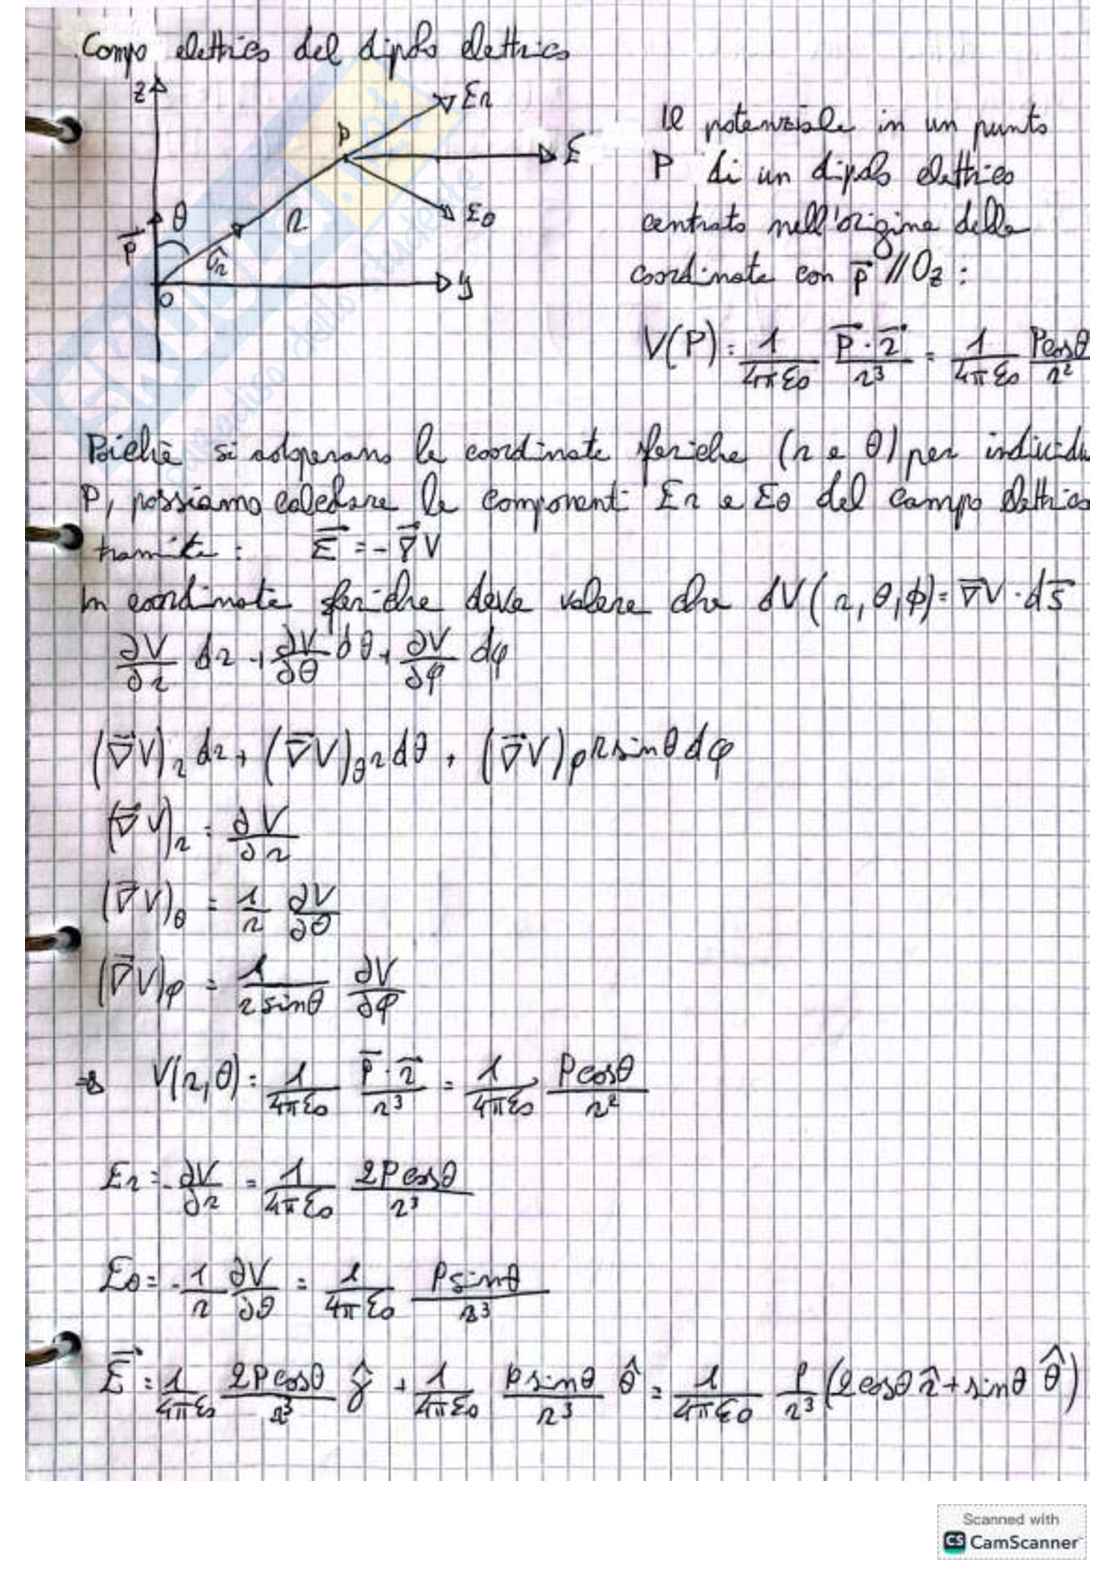 Campo elettrico del dipolo elettrico
z
Er
P
E
Eθ
r
θ
p⃗
ûr
O
y
Il potenziale in un punto
P di un dipolo elettrico
centrato nell'origine delle
coordinate con p⃗ // Oz :
V(P) = 1/(4πε0) (p⃗ · r⃗)/r³ = 1/(4πε0) (Pcosθ)/r²
Poichè si adoperano le coordinate sferiche (r e θ) per individu
P, possiamo calcolare le componenti Er e Eθ del campo elettrico
tramite : E⃗ = -∇⃗V
In coordinate sferiche deve valere che dV(r, θ, ϕ) = ∇⃗V · ds⃗
∂V/∂r dr + ∂V/∂θ dθ + ∂V/∂φ dφ
(∇⃗V)r dr + (∇⃗V)θ r dθ + (∇⃗V)φ r sinθ dφ
(∇⃗V)r = ∂V/∂r
(∇⃗V)θ = 1/r ∂V/∂θ
(∇⃗V)φ = 1/(r sinθ) ∂V/∂φ
⇒ V(r, θ) = 1/(4πε0) (p⃗ · r⃗)/r³ = 1/(4πε0) (Pcosθ)/r²
Er = -∂V/∂r = 1/(4πε0) (2Pcosθ)/r³
Eθ = -1/r ∂V/∂θ = 1/(4πε0) (Psinθ)/r³
E⃗ = 1/(4πε0) (2Pcosθ)/r³ r̂ + 1/(4πε0) (psinθ)/r³ θ̂ = 1/(4πε0) P/r³ (2cosθ r̂ + sinθ θ̂)
Scanned with
CS CamScanner